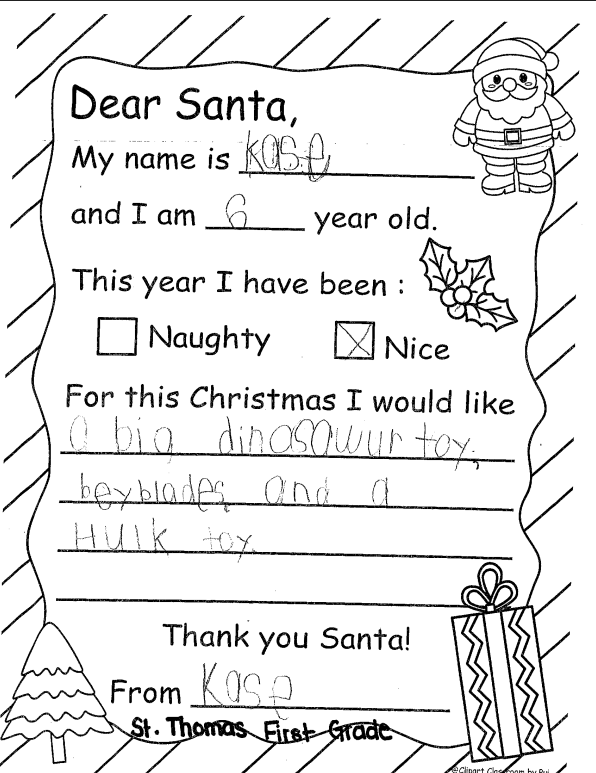 Dear Santa,
My name is Kase
and I am 6 year old.
This year I have been :
Naughty Nice
For this Christmas I would like
a big dinosawur toy,
beyblades and a
Hulk toy.
Thank you Santa!
From Kase
St. Thomas First Grade
@Clipart Classroom by Rui